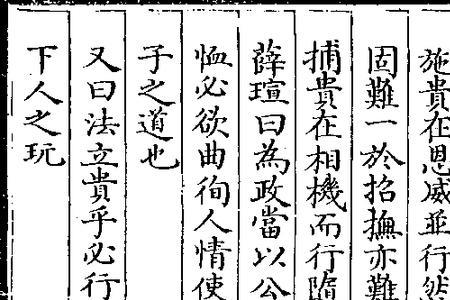 施貴在恩威並行然
固難一於招撫亦難
捕貴在相機而行隨
薛瑄曰為政當以公
恤必欲曲徇人情使
子之道也
又曰法立貴乎必行
下人之玩